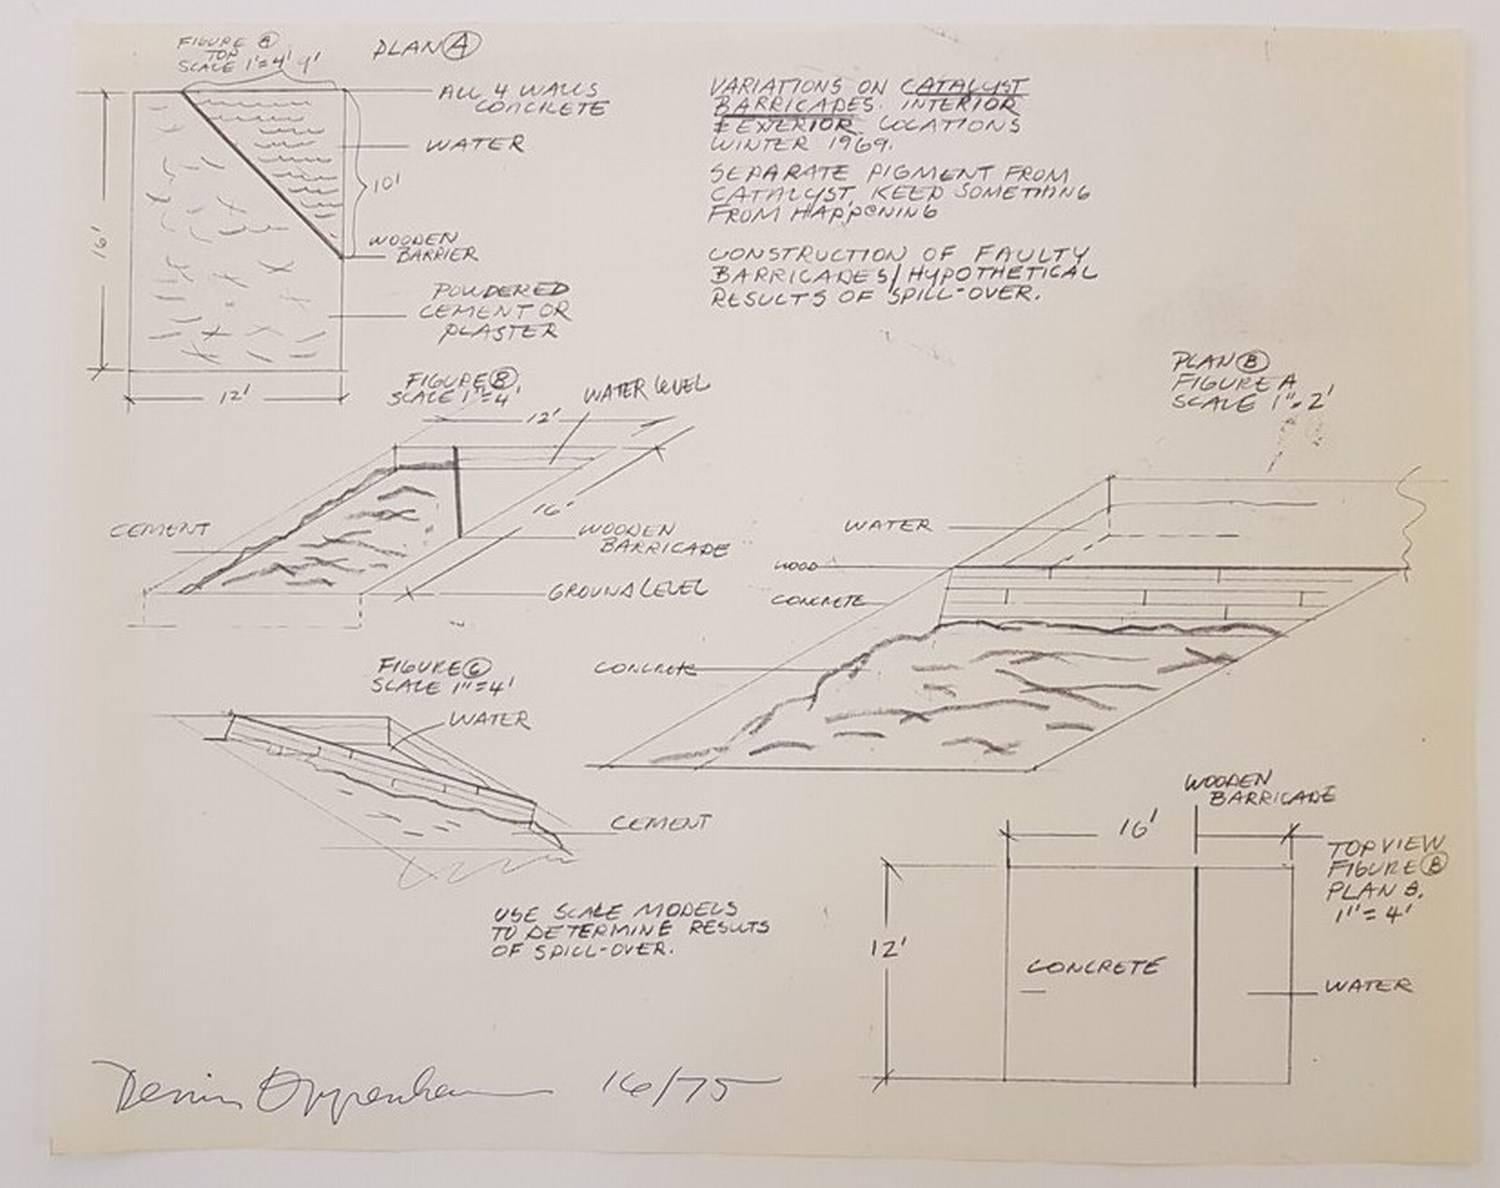 FIGURE A
TOP
SCALE 1"=4'
9'
PLAN A
ALL 4 WALLS
CONCRETE
WATER
10'
16'
WOODEN
BARRIER
POWDERED
CEMENT OR
PLASTER
12'
VARIATIONS ON CATALYST
BARRICADES. INTERIOR
& EXTERIOR LOCATIONS
WINTER 1969.
SEPARATE PIGMENT FROM
CATALYST, KEEP SOMETHING
FROM HAPPENING
CONSTRUCTION OF FAULTY
BARRICADES/HYPOTHETICAL
RESULTS OF SPILL-OVER.
FIGURE B
SCALE 1"=4'
WATER LEVEL
12'
16'
CEMENT
WOODEN
BARRICADE
GROUND LEVEL
PLAN B
FIGURE A
SCALE 1"=2'
WATER
WOOD
CONCRETE
CONCRETE
FIGURE C
SCALE 1"=4'
WATER
CEMENT
USE SCALE MODELS
TO DETERMINE RESULTS
OF SPILL-OVER.
WOODEN
BARRICADE
16'
TOP VIEW
FIGURE B
PLAN B.
1"=4'
12'
CONCRETE
WATER
Dennis Oppenheim 16/75